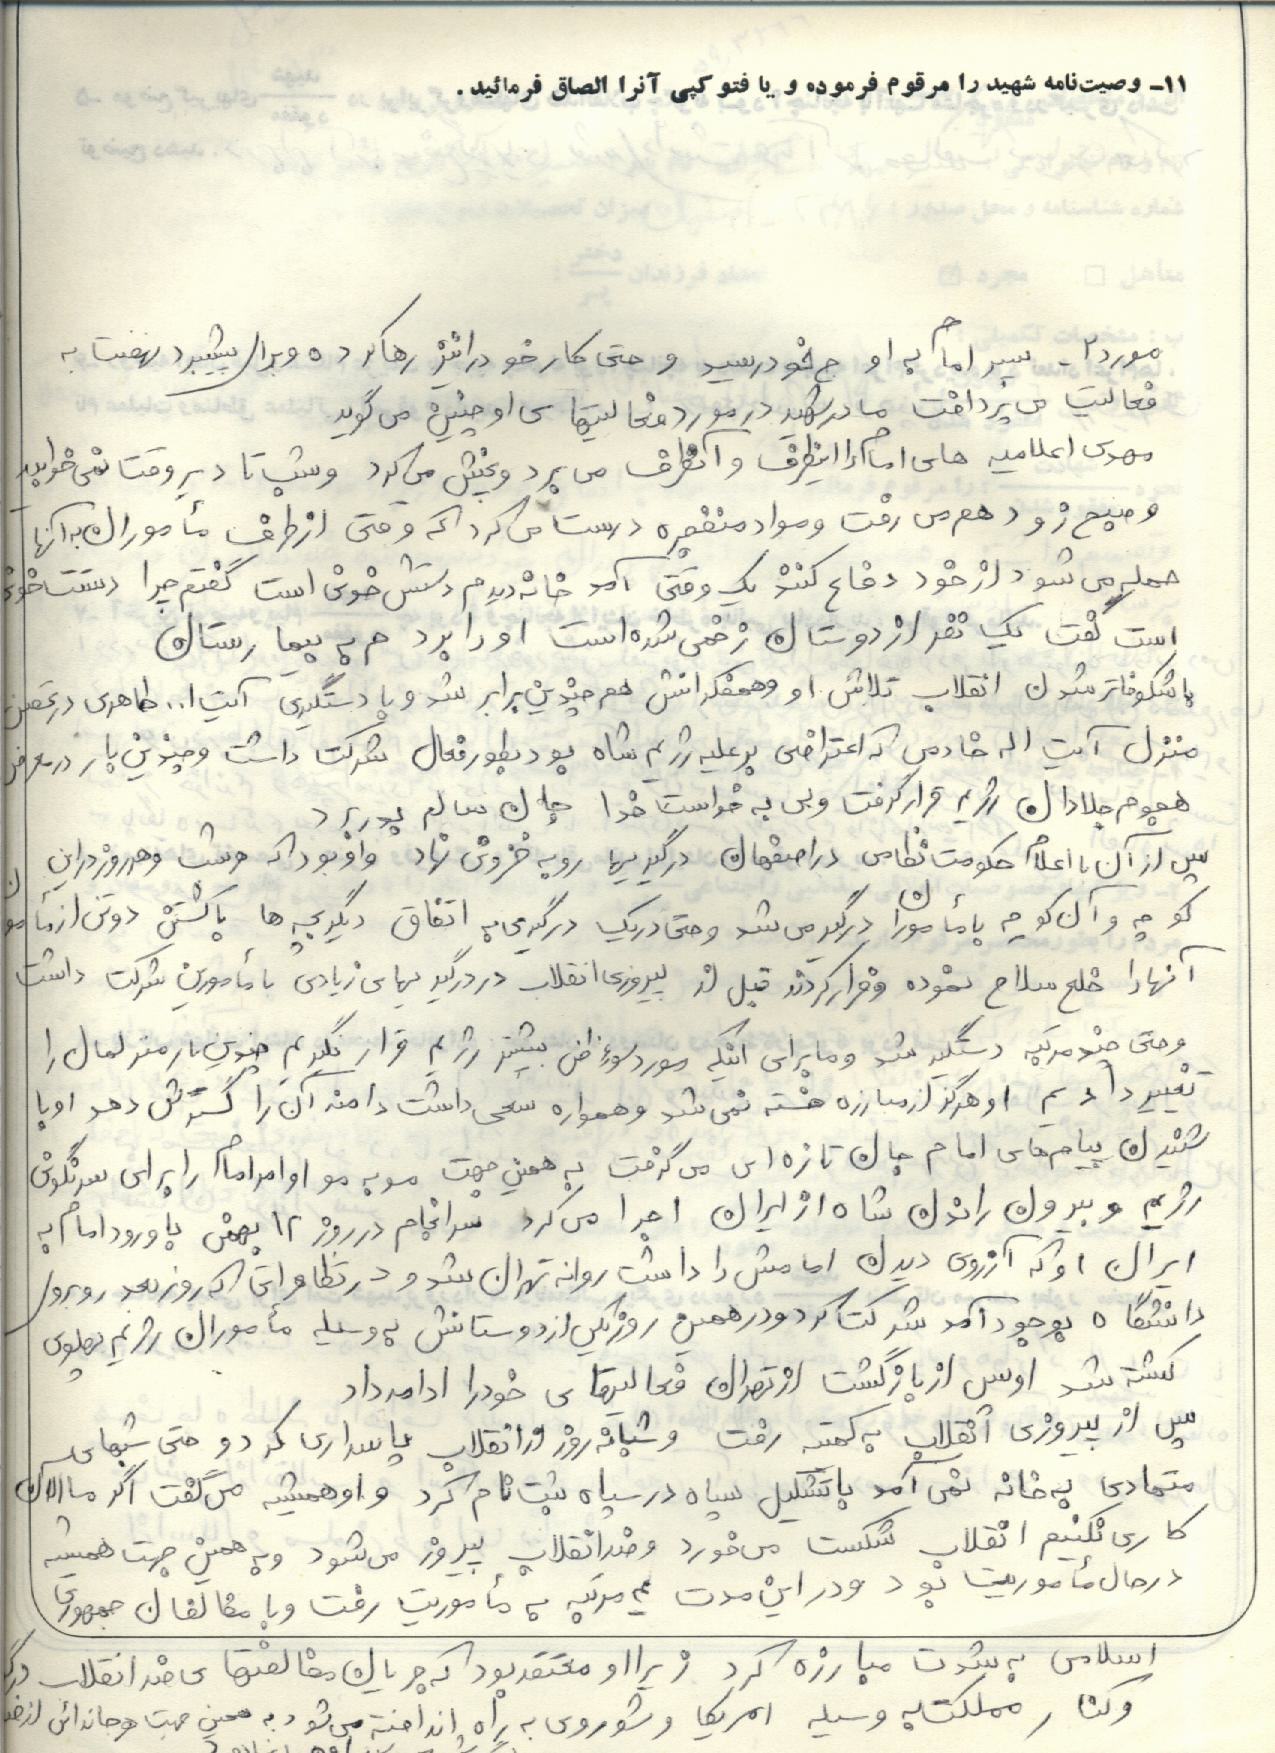 ۱۱ـ وصیت‌نامه شهید را مرقوم فرموده و یا فتو کپی آنرا الصاق فرمائید.
مورد ۲ ـ سپر امام به او ج خود رسید و حتی کار خود را نیز رها کرده و برای پیشبرد نهضت به
فعالیت می پرداخت مادر شهید در مورد فعالیتهای او چنین می گوید
مهدی اعلامیه های امام را اینطرف و آنطرف می برد و پخش می کرد و شب تا دیر وقت نمی خوابید
و صبح زود هم می رفت و مواد منفجره درست می کرد که وقتی از طرف مأموران به آنها
حمله می شود از خود دفاع کنند یک وقتی آمد خانه دیدم دستش خونی است گفتم چرا دستت خونی
است گفت یک نفر از دوستان زخمی شده است او را بردم به بیمارستان
با شکوفاتر شدن انقلاب تلاش او و همفکرانش هم چندین برابر شد و با دستگیری آیت ا.. طاهری در تحصن
منزل آیت اله خادمی که اعتراضی بر علیه رژیم شاه بود بطور فعال شرکت داشت و چندین بار در معرض
هجوم جلادان رژیم قرار گرفت ولی به خواست خدا جان سالم بدر برد
پس از آن با اعلام حکومت نظامی در اصفهان درگیریها رو به فزونی نهاد و او بود که هر شب و هر روز در این
کوچه و آن کوچه با مأموران درگیر می شد و حتی در یک درگیری به اتفاق دیگر بچه ها با کشتن دو تن از مأموران
آنها را خلع سلاح نموده و فرار کردند قبل از پیروزی انقلاب در درگیریهای زیادی با مأمورین شرکت داشت
و حتی چند مرتبه دستگیر شد و ما برای اینکه مورد سوءظن بیشتر رژیم قرار نگیریم چندین بار منزلمان را
تغییر دادیم او هرگز از مبارزه خسته نمی شد و همواره سعی داشت دامنه آن را گسترش دهد او با
شنیدن پیامهای امام جان تازه ای می گرفت به همین جهت مو به مو اوامر امام را برای سرنگونی
رژیم و بیرون راندن شاه از ایران اجرا می کرد سرانجام در روز ۱۲ بهمن با ورود امام به
ایران او که آرزوی دیدن امامش را داشت روانه تهران شد و در تظاهراتی که روز بعد روبروی
دانشگاه بوجود آمد شرکت کرد و در همین روز یکی از دوستانش به وسیله مأموران رژیم پهلوی
کشته شد او پس از بازگشت از تهران فعالیتهای خود را ادامه داد
پس از پیروزی انقلاب به کمیته رفت و شبانه روز از انقلاب پاسداری کرد و حتی شبهای
متمادی به خانه نمی آمد با تشکیل سپاه در سپاه ثبت نام کرد و او همیشه می گفت اگر ما الان
کاری نکنیم انقلاب شکست می خورد و ضد انقلاب پیروز می شود و به همین جهت همیشه
در حال مأموریت بود و در این مدت مرتبه به مأموریت رفت و با مخالفان جمهوری
اسلامی به شدت مبارزه کرد زیرا او معتقد بود که جریان مخالفتهای ضد انقلاب در
و کنار مملکت به وسیله امریکا و شوروی به راه انداخته می شود به همین جهت